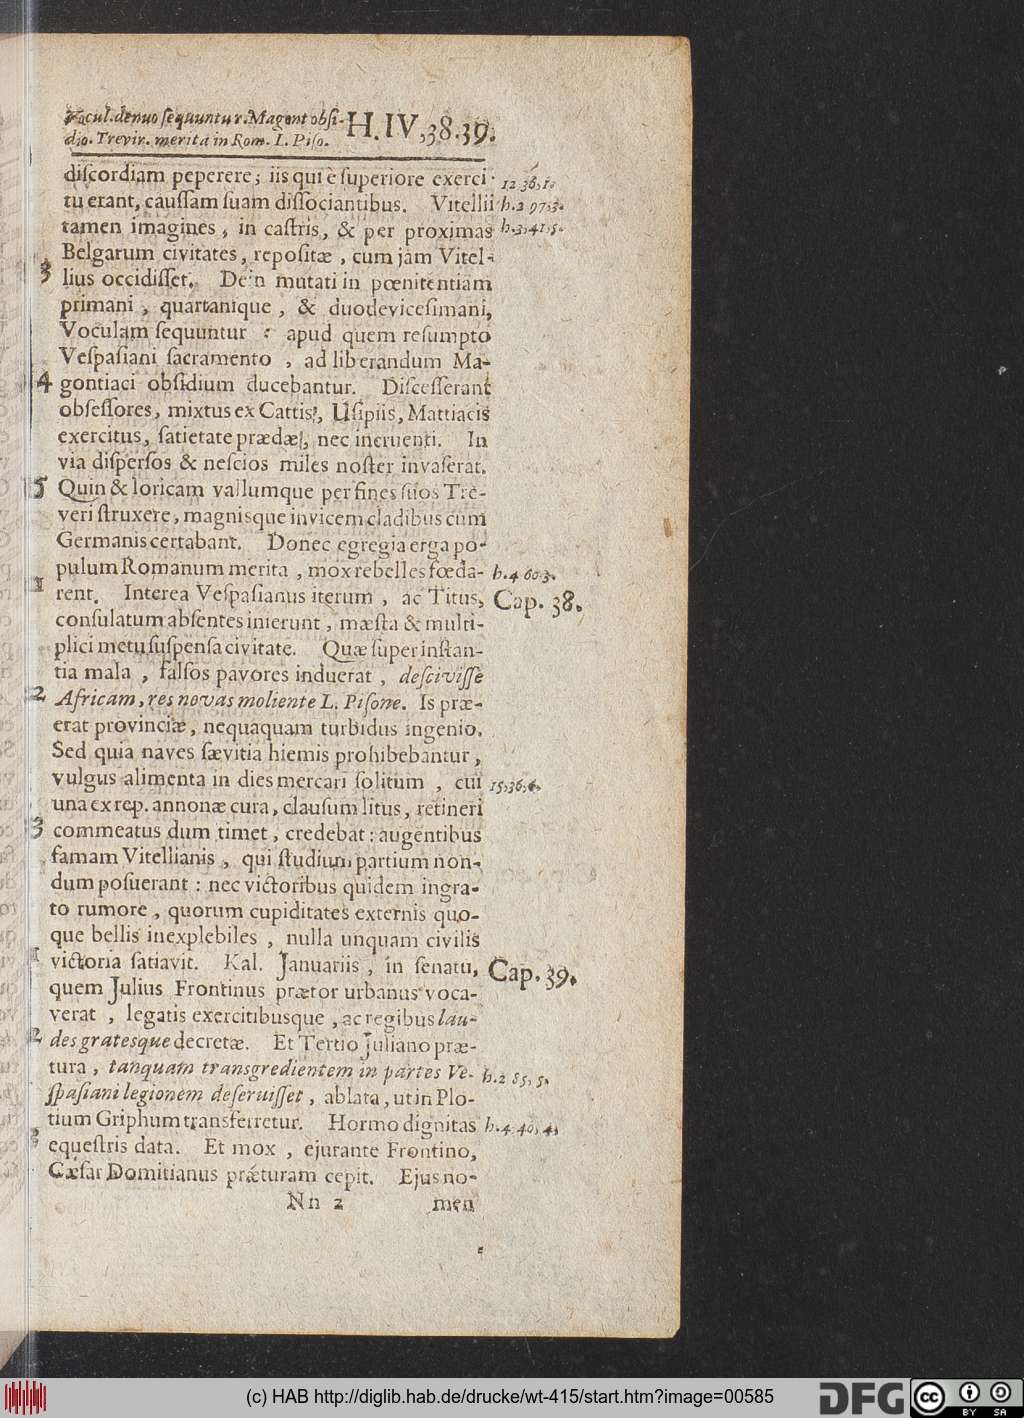 Vocul. denuo sequuntur. Magont obsi-
dio. Trevir. merita in Rom. L. Piso. H. IV, 38. 39.
discordiam peperere; iis qui è superiore exerci-
tu erant, caussam suam dissociantibus. Vitellii h. 2 97, 3.
tamen imagines, in castris, & per proximas h. 3, 41, 5.
Belgarum civitates, repositæ, cum jam Vitel-
3 lius occidisset. Dein mutati in pœnitentiam
primani, quartanique, & duodevicesimani,
Voculam sequuntur: apud quem resumpto
Vespasiani sacramento, ad liberandum Ma-
4 gontiaci obsidium ducebantur. Discesserant
obsessores, mixtus ex Cattis, Usipiis, Mattiacis
exercitus, satietate prædæ, nec incruenti. In
via dispersos & nescios miles noster invaserat.
5 Quin & loricam vallumque per fines suos Tre-
veri struxere, magnisque invicem cladibus cum
Germanis certabant. Donec egregia erga po-
pulum Romanum merita, mox rebelles fœda- h. 4 60 3.
1 rent. Interea Vespasianus iterum, ac Titus, Cap. 38.
consulatum absentes inierunt, mæsta & multi-
plici metu suspensa civitate. Quæ super instan-
tia mala, falsos pavores induerat, descivisse
2 Africam, res novas moliente L. Pisone. Is præ-
erat provinciæ, nequaquam turbidus ingenio.
Sed quia naves sævitia hiemis prohibebantur,
vulgus alimenta in dies mercari solitum, cui 15, 36, 6.
una ex rep. annonæ cura, clausum litus, retineri
3 commeatus dum timet, credebat: augentibus
famam Vitellianis, qui studium partium non-
dum posuerant: nec victoribus quidem ingra-
to rumore, quorum cupiditates externis quo-
que bellis inexplebiles, nulla unquam civilis
1 victoria satiavit. Kal. Januariis, in senatu, Cap. 39.
quem Julius Frontinus prætor urbanus voca-
verat, legatis exercitibusque, ac regibus lau-
2 des gratesque decretæ. Et Tertio Juliano præ-
tura, tanquam transgredientem in partes Ve- h. 2 85, 5.
spasiani legionem deseruisset, ablata, ut in Plo-
tium Griphum transferretur. Hormo dignitas h. 4, 40, 4,
3 equestris data. Et mox, ejurante Frontino,
Cæsar Domitianus præturam cepit. Ejus no-
Nn 2 men
(c) HAB http://diglib.hab.de/drucke/wt-415/start.htm?image=00585
DFG cc BY SA